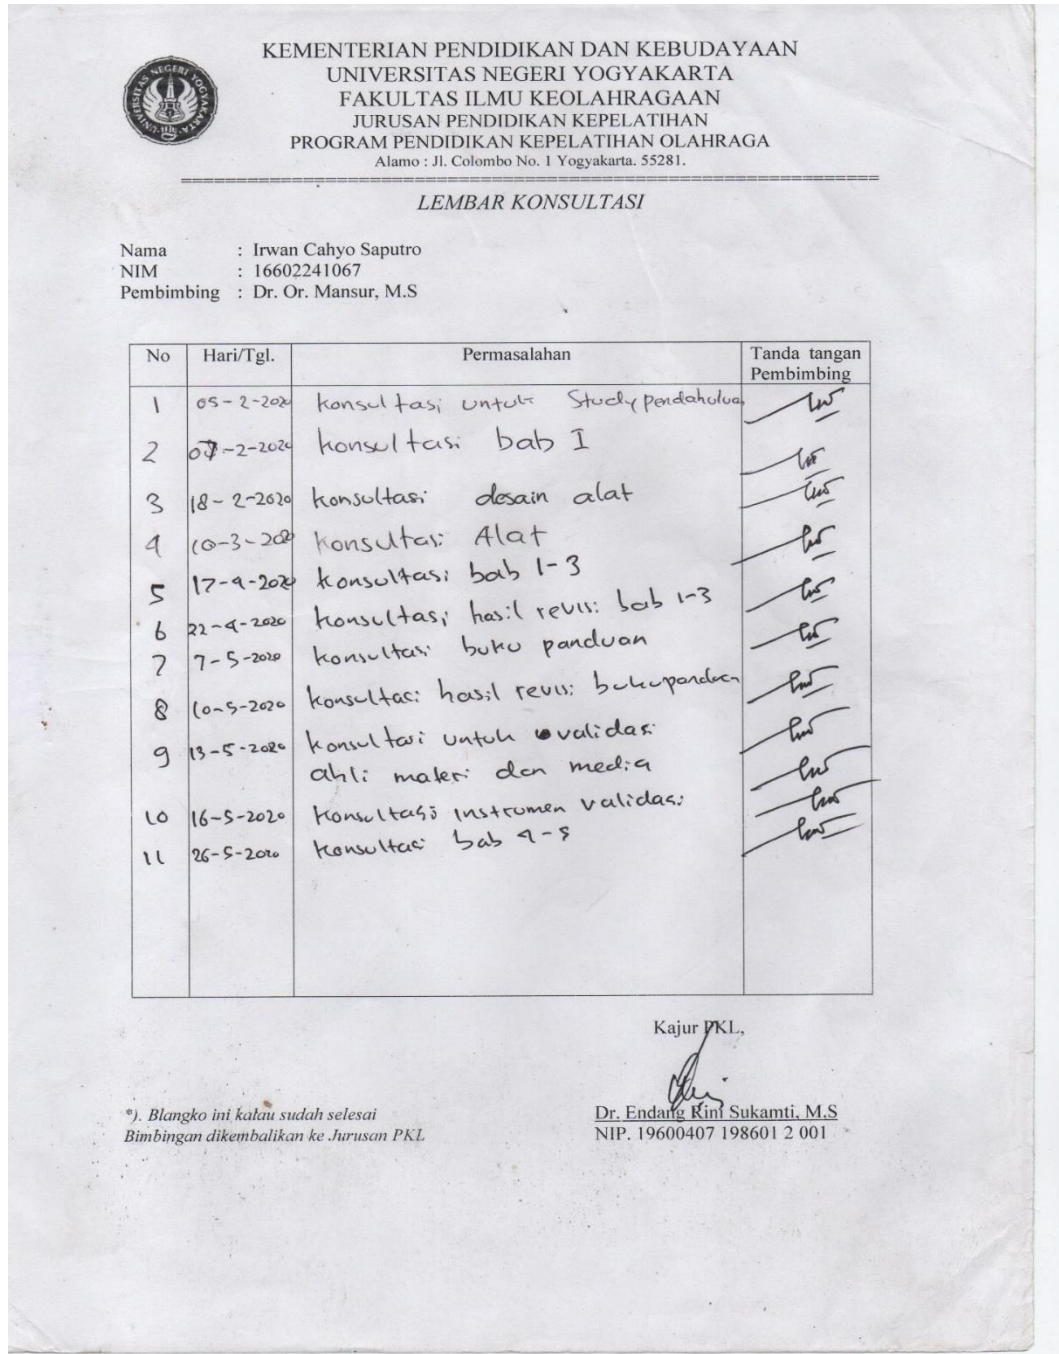 KEMENTERIAN PENDIDIKAN DAN KEBUDAYAAN
UNIVERSITAS NEGERI YOGYAKARTA
FAKULTAS ILMU KEOLAHRAGAAN
JURUSAN PENDIDIKAN KEPELATIHAN
PROGRAM PENDIDIKAN KEPELATIHAN OLAHRAGA
Alamo : Jl. Colombo No. 1 Yogyakarta. 55281.
UNIVERSITAS NEGERI YOGYAKARTA
LEMBAR KONSULTASI
Nama : Irwan Cahyo Saputro
NIM : 16602241067
Pembimbing : Dr. Or. Mansur, M.S
No Hari/Tgl. Permasalahan Tanda tangan Pembimbing
1 05-2-2020 konsultasi untuk Study pendahuluan
2 07-2-2020 konsultasi bab I
3 18-2-2020 konsultasi desain alat
4 10-3-2020 konsultasi Alat
5 17-4-2020 konsultasi bab 1-3
6 22-4-2020 konsultasi hasil revisi bab 1-3
7 7-5-2020 konsultasi buku panduan
8 10-5-2020 konsultasi hasil revisi buku panduan
9 13-5-2020 konsultasi untuk validasi
ahli materi dan media
10 16-5-2020 konsultasi instrumen validasi
11 26-5-2020 konsultasi bab 4-5
Kajur PKL,
*). Blangko ini kalau sudah selesai
Bimbingan dikembalikan ke Jurusan PKL
Dr. Endang Rini Sukamti, M.S
NIP. 19600407 198601 2 001